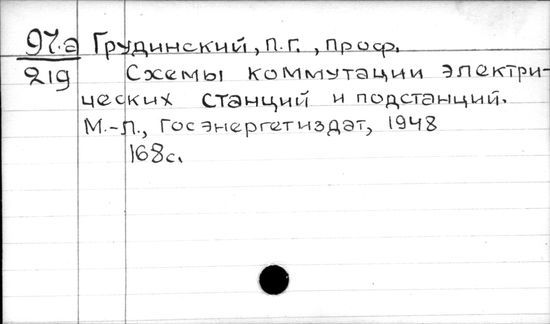 97.а Грудинский, П.Г., проф.
219 Схемы коммутации электри-
ческих станций и подстанций.
М.-Л., Госэнергетиздат, 1948
168с.